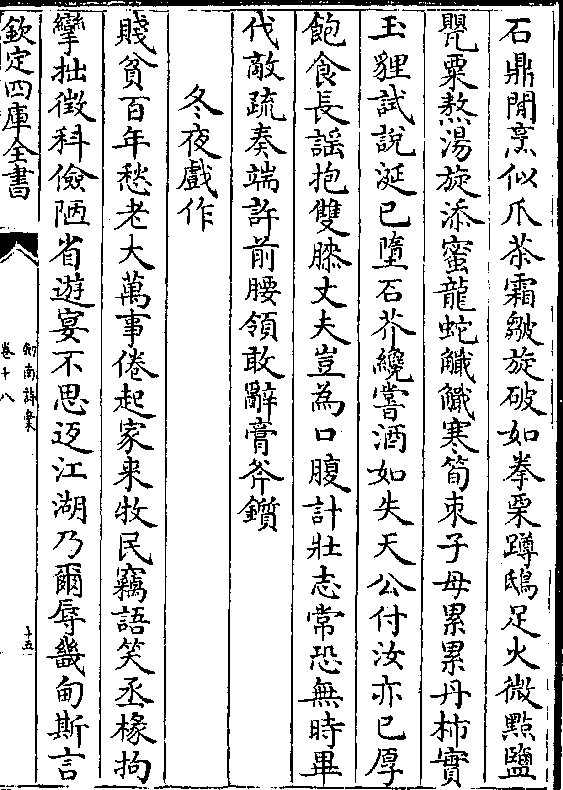 石鼎閒烹似爪茶霜皴旋破如拳栗蹲鴟足火微㸃鹽
甖粟熬湯旋添蜜龍蛇觺觺寒筍束子母累累丹柿實
玉貍試說涎已墮石芥纔嘗酒如失天公付汝亦已厚
飽食長謡抱雙膝丈夫豈為口腹計壯志常恐無時畢
代敵疏奏端許前腰領敢辭膏斧鑕
冬夜戲作
賤貧百年愁老大萬事倦起家来牧民竊語笑丞椽拘
攣拙徵科儉陋省遊宴不思返江湖乃爾辱畿甸斯言
欽定四庫全書
劒南詩藁
卷十八
十五